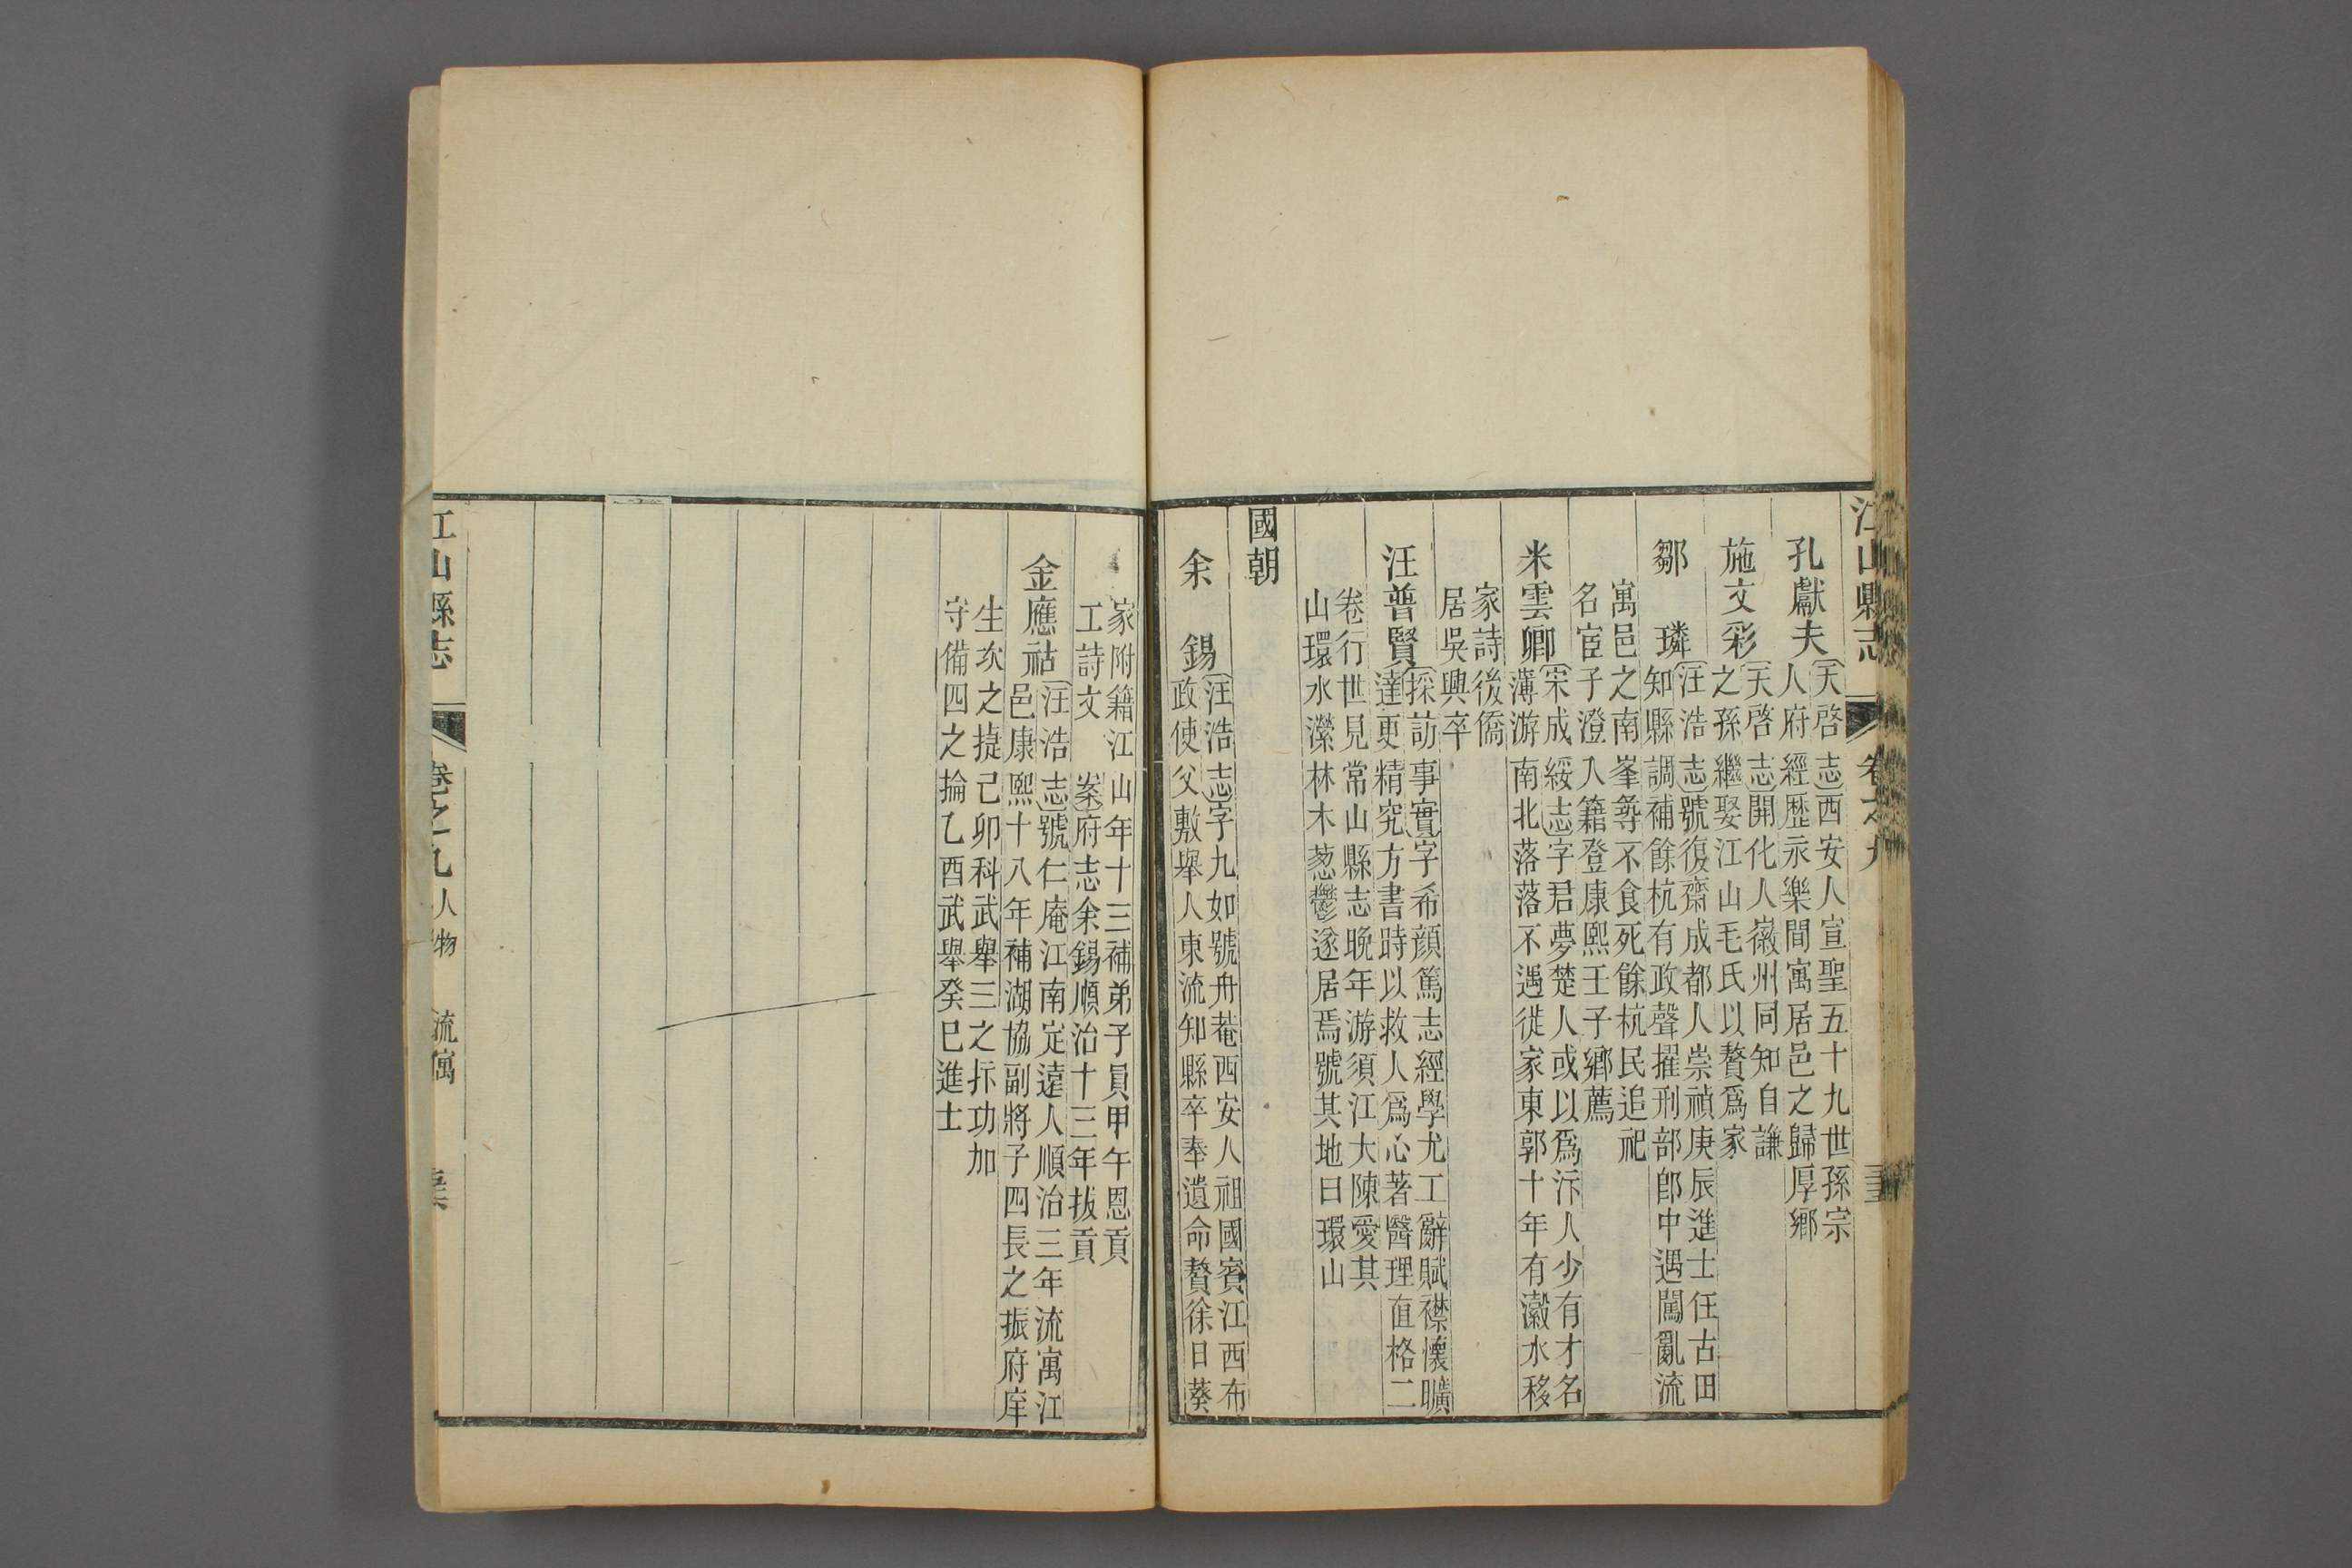 江山縣志 卷之九
孔獻夫
天啓志西安人宣聖五十九世孫宗
人府經歷永樂間寓居邑之歸厚鄉
施文彩
天啓志開化人徽州同知自謙
之孫繼娶江山毛氏以贅爲家
鄒 璘
汪浩志號復齋成都人崇禎庚辰進士任古田
知縣調補餘杭有政聲擢刑部郎中遇闖亂流
寓邑之南峯等不食死餘杭民追祀
名宦子澄入籍登康熙壬子鄉薦
米雲卿
宋成綏志字君夢楚人或以爲汴人少有才名
薄游南北落落不遇徙家東郭十年有瀫水移
家詩後僑
居吳興卒
汪普賢
採訪事實字希顔篤志經學尤工辭賦襟懷曠
達更精究方書時以救人爲心著醫理直格二
卷行世見常山縣志晚年游須江大陳愛其
山環水瀠林木葱鬱遂居焉號其地曰環山
國朝
余 錫
汪浩志字九如號舟菴西安人祖國賓江西布
政使父敷舉人東流知縣卒奉遺命贅徐日葵
家附籍江山年十三補弟子員甲午恩貢
工詩文 案府志余錫順治十三年拔貢
金應祜
汪浩志號仁庵江南定遠人順治三年流寓江
邑康熙十八年補湖協副將子四長之振府庠
生次之捷己卯科武舉三之抃功加
守備四之掄乙酉武舉癸巳進士
江山縣志 卷之九 人物 流寓